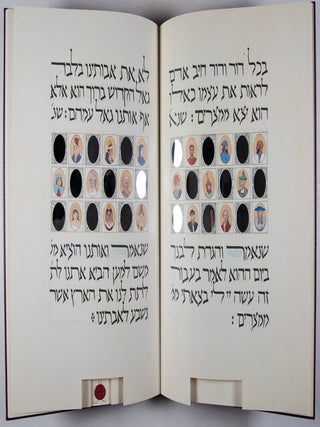 בכל דור ודור חיב אדם
לראות את עצמו כאלו
הוא יצא ממצרים: שנא׳
שנאמר והגדת לבנך
ביום ההוא לאמר בעבור
זה עשה יי לי בצאתי ממ
ממצרים:
לא את אבותינו בלבד
גאל הקדוש ברוך הוא אלא
אף אותנו גאל עמהם: שנ׳
שנאמר ואותנו הוציא מ
משם למען הביא אתנו לת
לתת לנו את הארץ אשר
נשבע לאבתינו